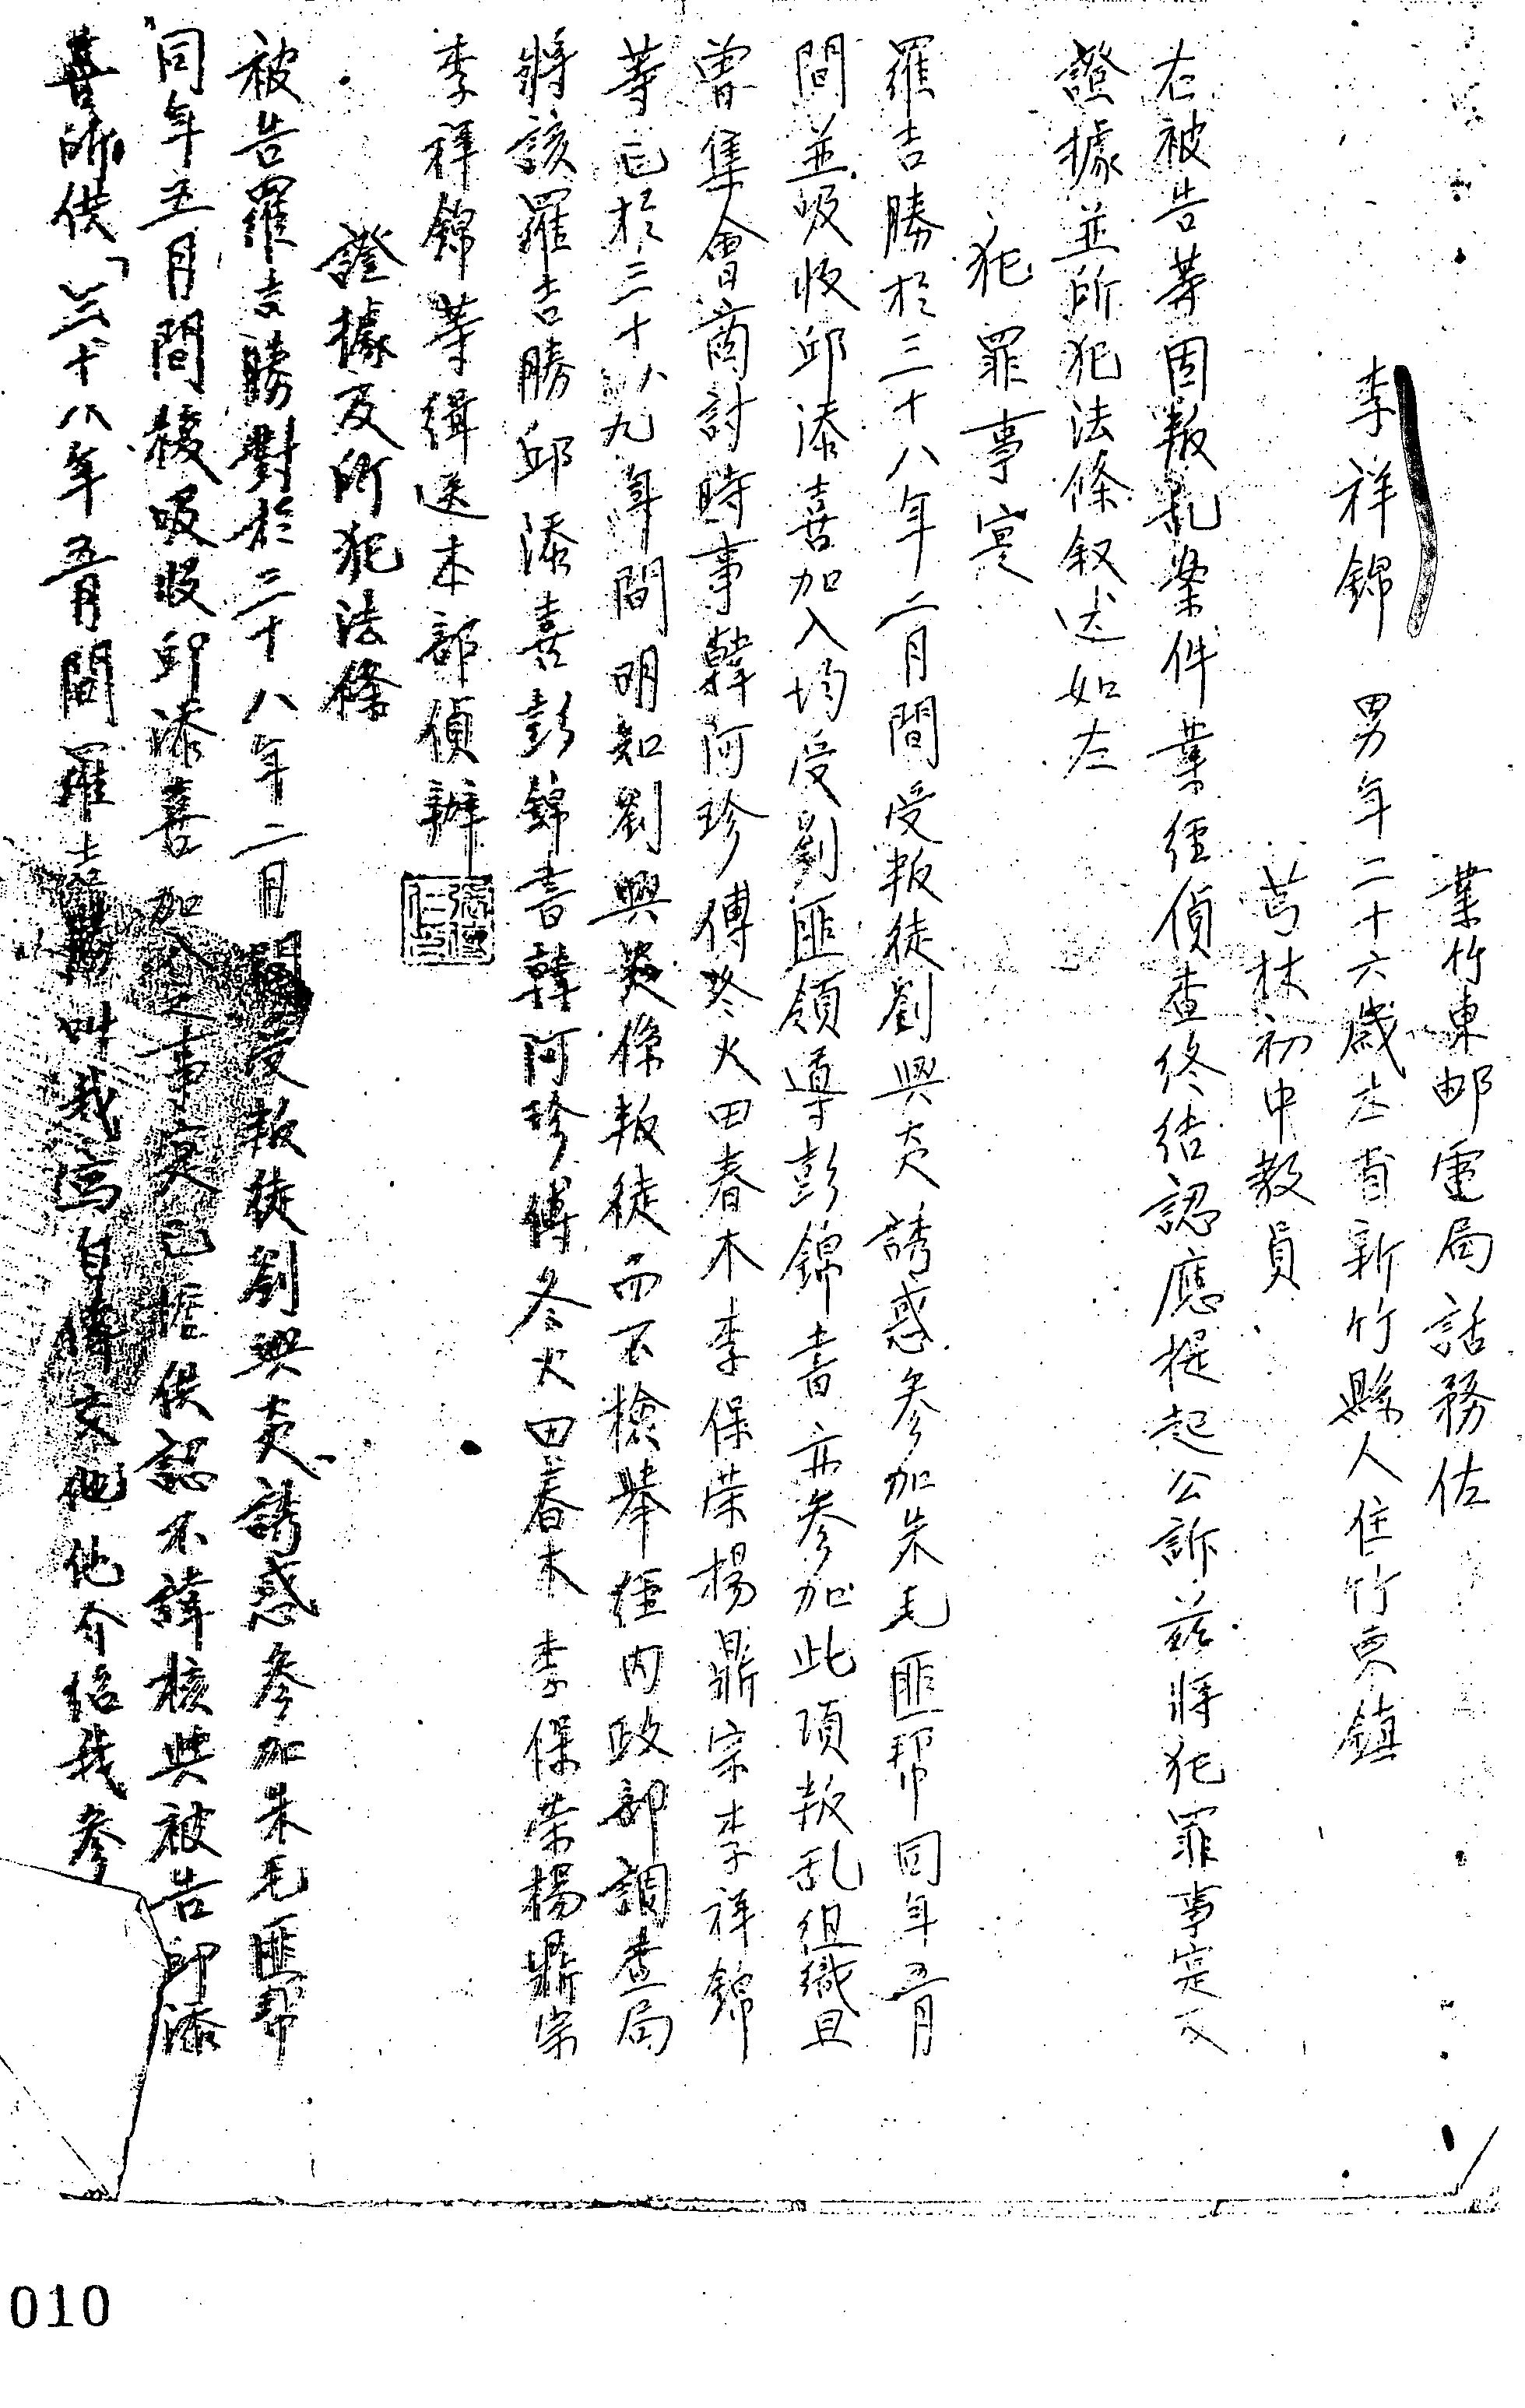 業竹東邮電局話務佐
李祥錦 男年二十六歲本省新竹縣人住竹東鎮
芎林初中教員
右被告等因叛乱案件業經偵查終結認應提起公訴茲將犯罪事实及
證據並所犯法條叙述如左
犯罪事实
羅吉勝於三十八年二月間受叛徒劉興炎誘惑参加朱毛匪帮同年五月
間並吸收邱添喜加入均受劉匪領導彭錦書亦参加此項叛乱组織且
曾集會商討時事韓阿珍傅冬火田春木李保荣楊鼎宗李祥錦
等已於三十八九年間明知劉興炎係叛徒而不檢舉經内政部調查局
將該羅吉勝邱添喜彭錦書韓阿珍傅冬火田春木李保荣楊鼎宗
李祥錦等緝送本部偵辦
證據及所犯法條
被告羅吉勝對於三十八年二月間受叛徒劉興炎誘惑参加朱毛匪帮
同年五月間後吸收邱添喜加入之事实已據供認不諱核與被告邱添
喜所供「三十八年五月間羅吉勝叫我寫自傳交他他介紹我参
010